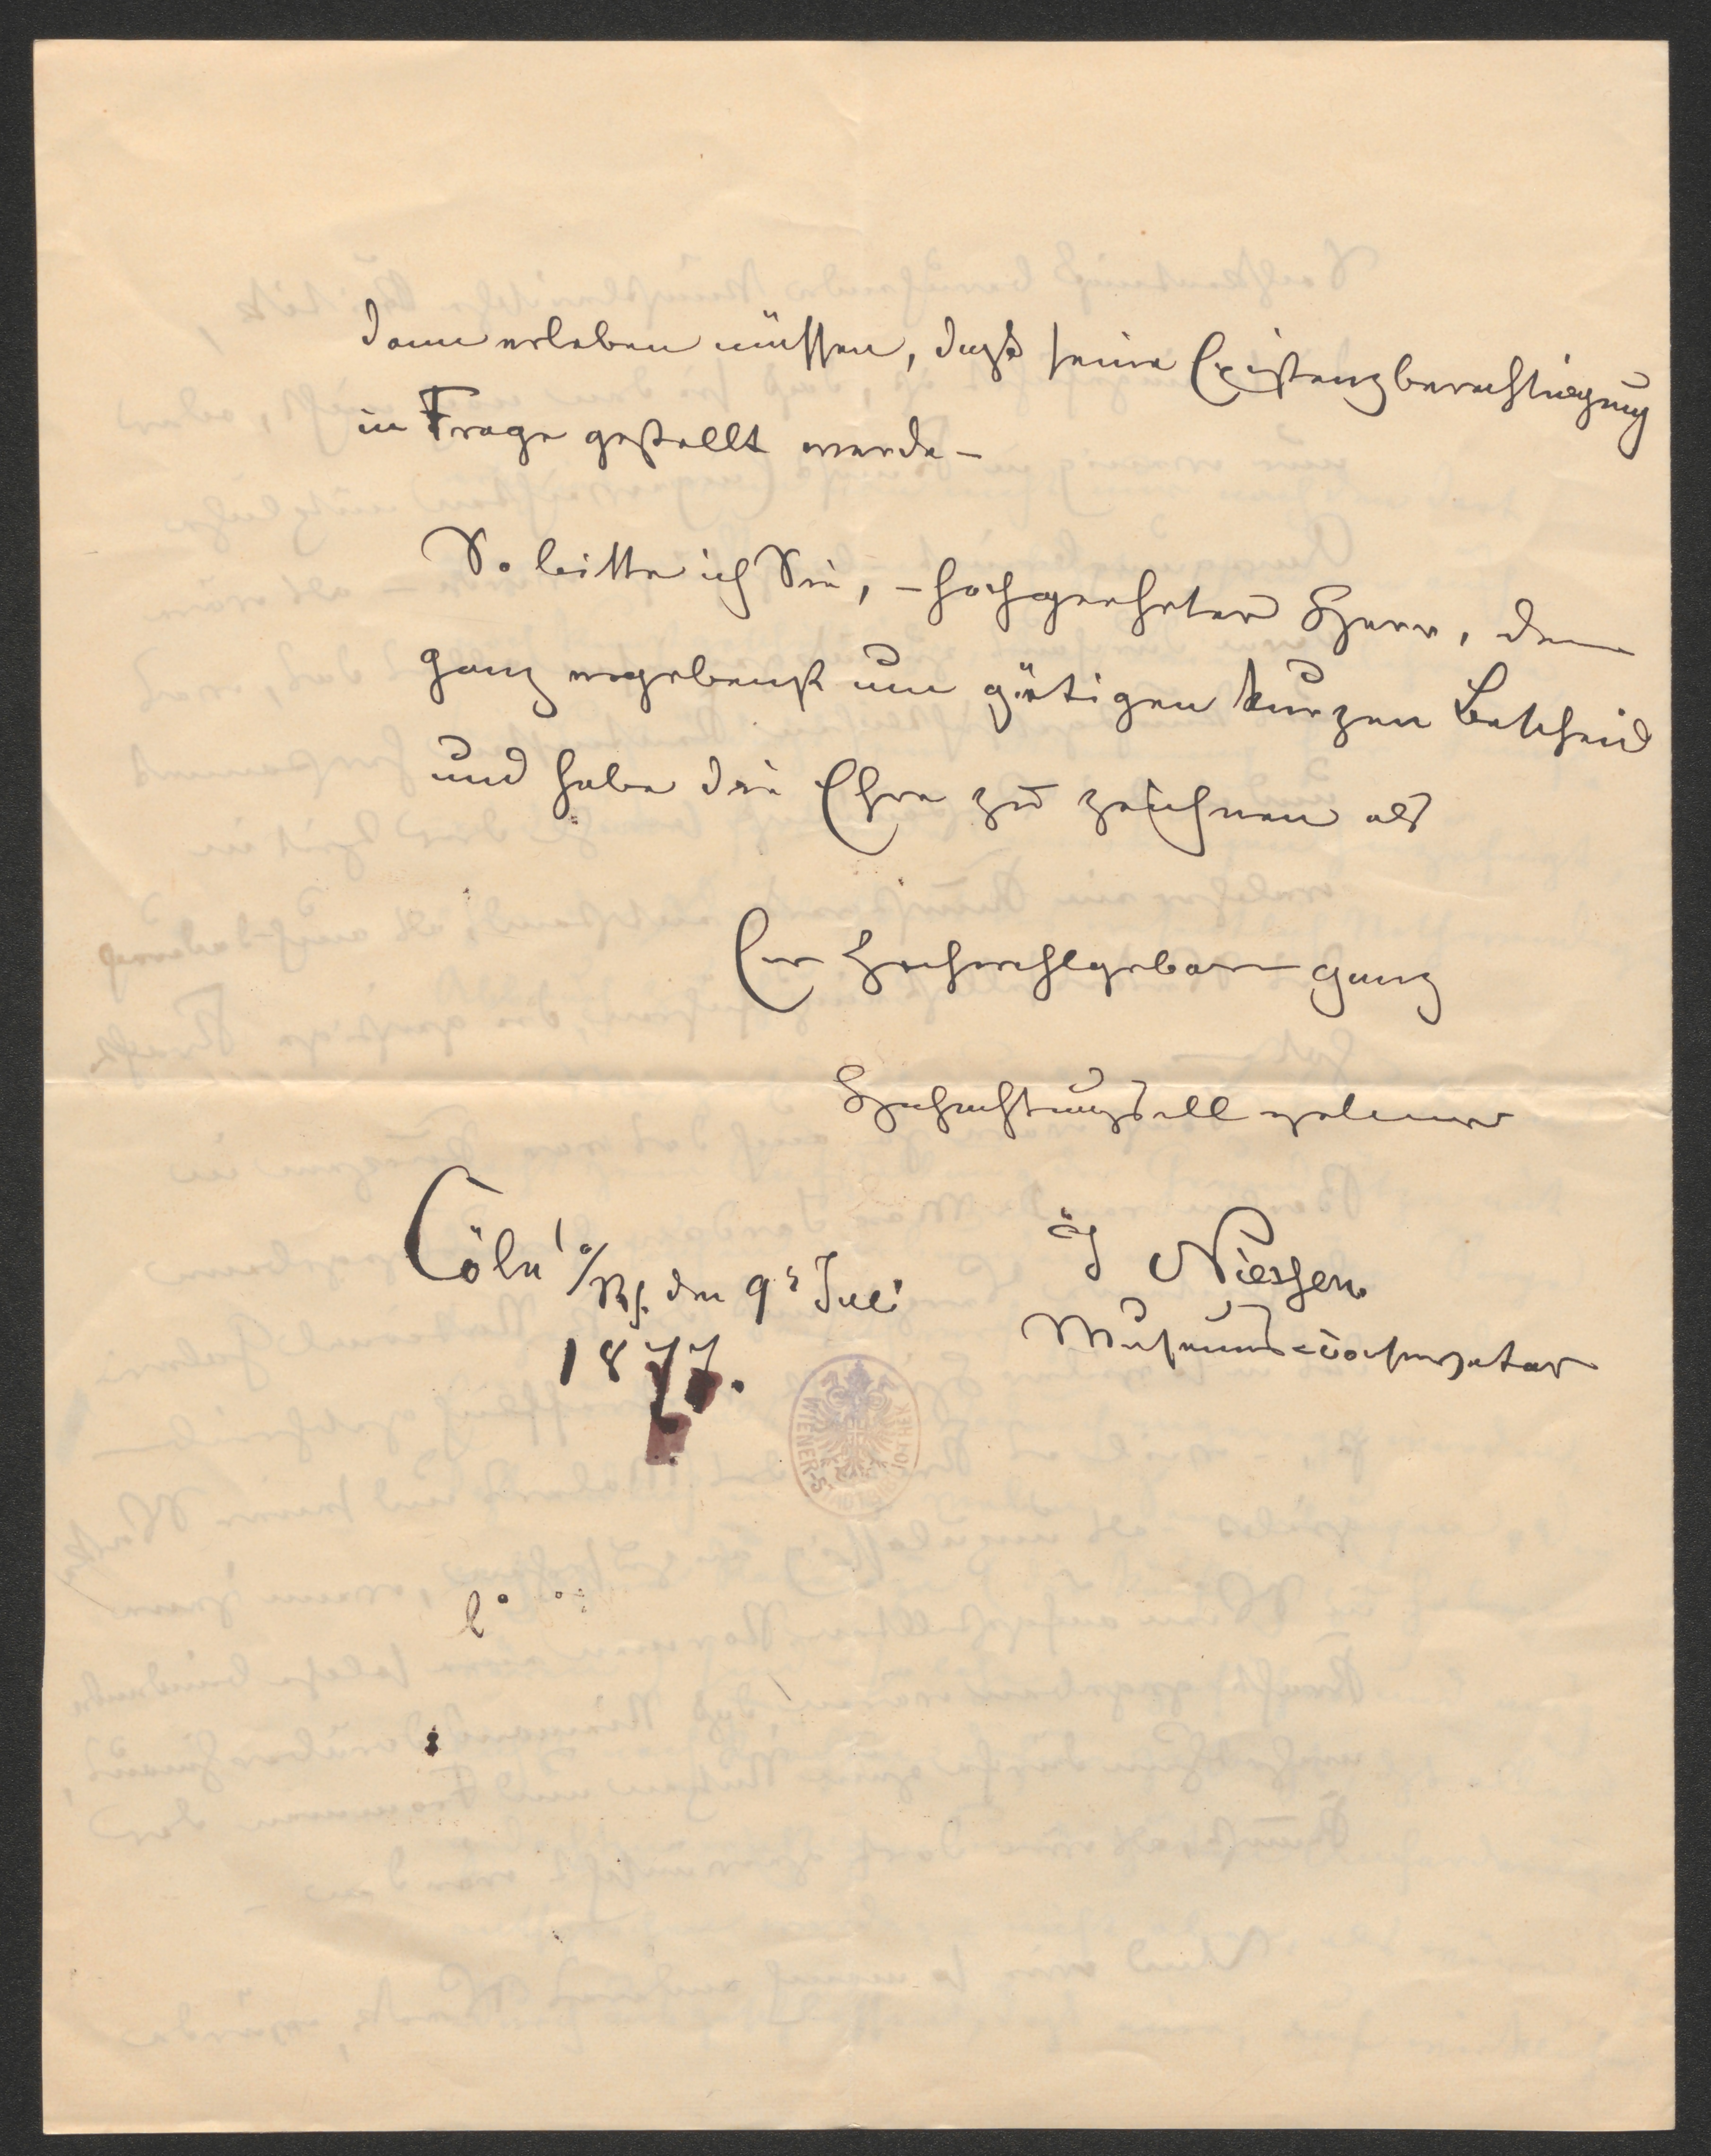 dann erleben müssen, dass seine Existenzberechtigung
in Frage gestellt werde –
So bitte ich Sie, – hochgeehrter Herr, denn
ganz ergebenst um gütigen kurzen Bescheid
und habe die Ehre zu zeichnen als
Ew Hochwohlgeboren ganz
Hochachtungsvoll ergebener
Cöln a/Rh. den 9ᵗ Juli
1877.
J Niessen
Museums-Conservator
WIENER STADTBIBLIOTHEK